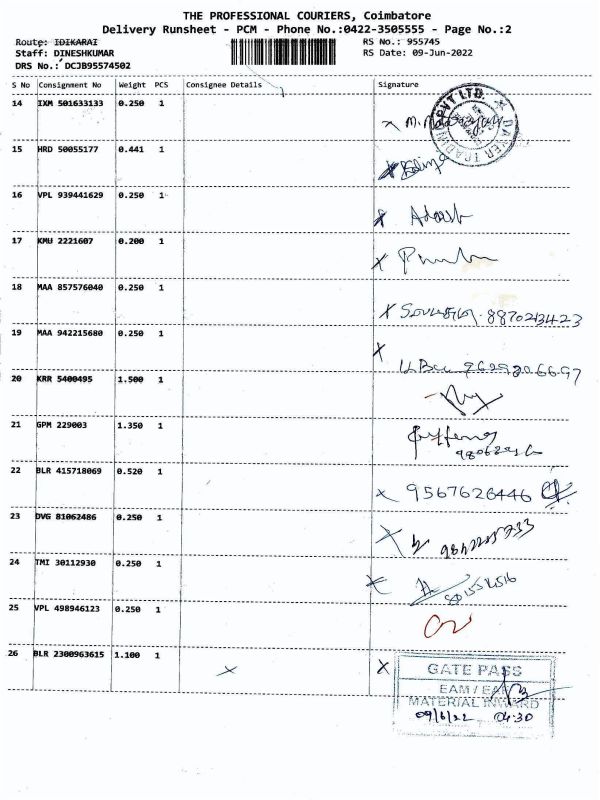 THE PROFESSIONAL COURIERS, Coimbatore
Delivery Runsheet - PCM - Phone No.:0422-3505555 - Page No.:2
Route: IDIKARAI
RS No.: 955745
Staff: DINESHKUMAR
RS Date: 09-Jun-2022
DRS No.: DCJB95574502
S No Consignment No Weight PCS Consignee Details Signature
14 IXM 501633133 0.250 1
PVT LTD.
15 HRD 50055177 0.441 1
16 VPL 939441629 0.250 1 Adarsh
17 KMU 2221607 0.200 1
18 MAA 857576040 0.250 1
19 MAA 942215680 0.250 1
20 KRR 5400495 1.500 1
21 GPM 229003 1.350 1
22 BLR 415718069 0.520 1 9567626446
23 DVG 81062486 0.250 1
24 TMI 30112930 0.250 1
25 VPL 498946123 0.250 1
26 BLR 2300963615 1.100 1
GATE PASS
MATERIAL INWARD
09/6/22 04:30